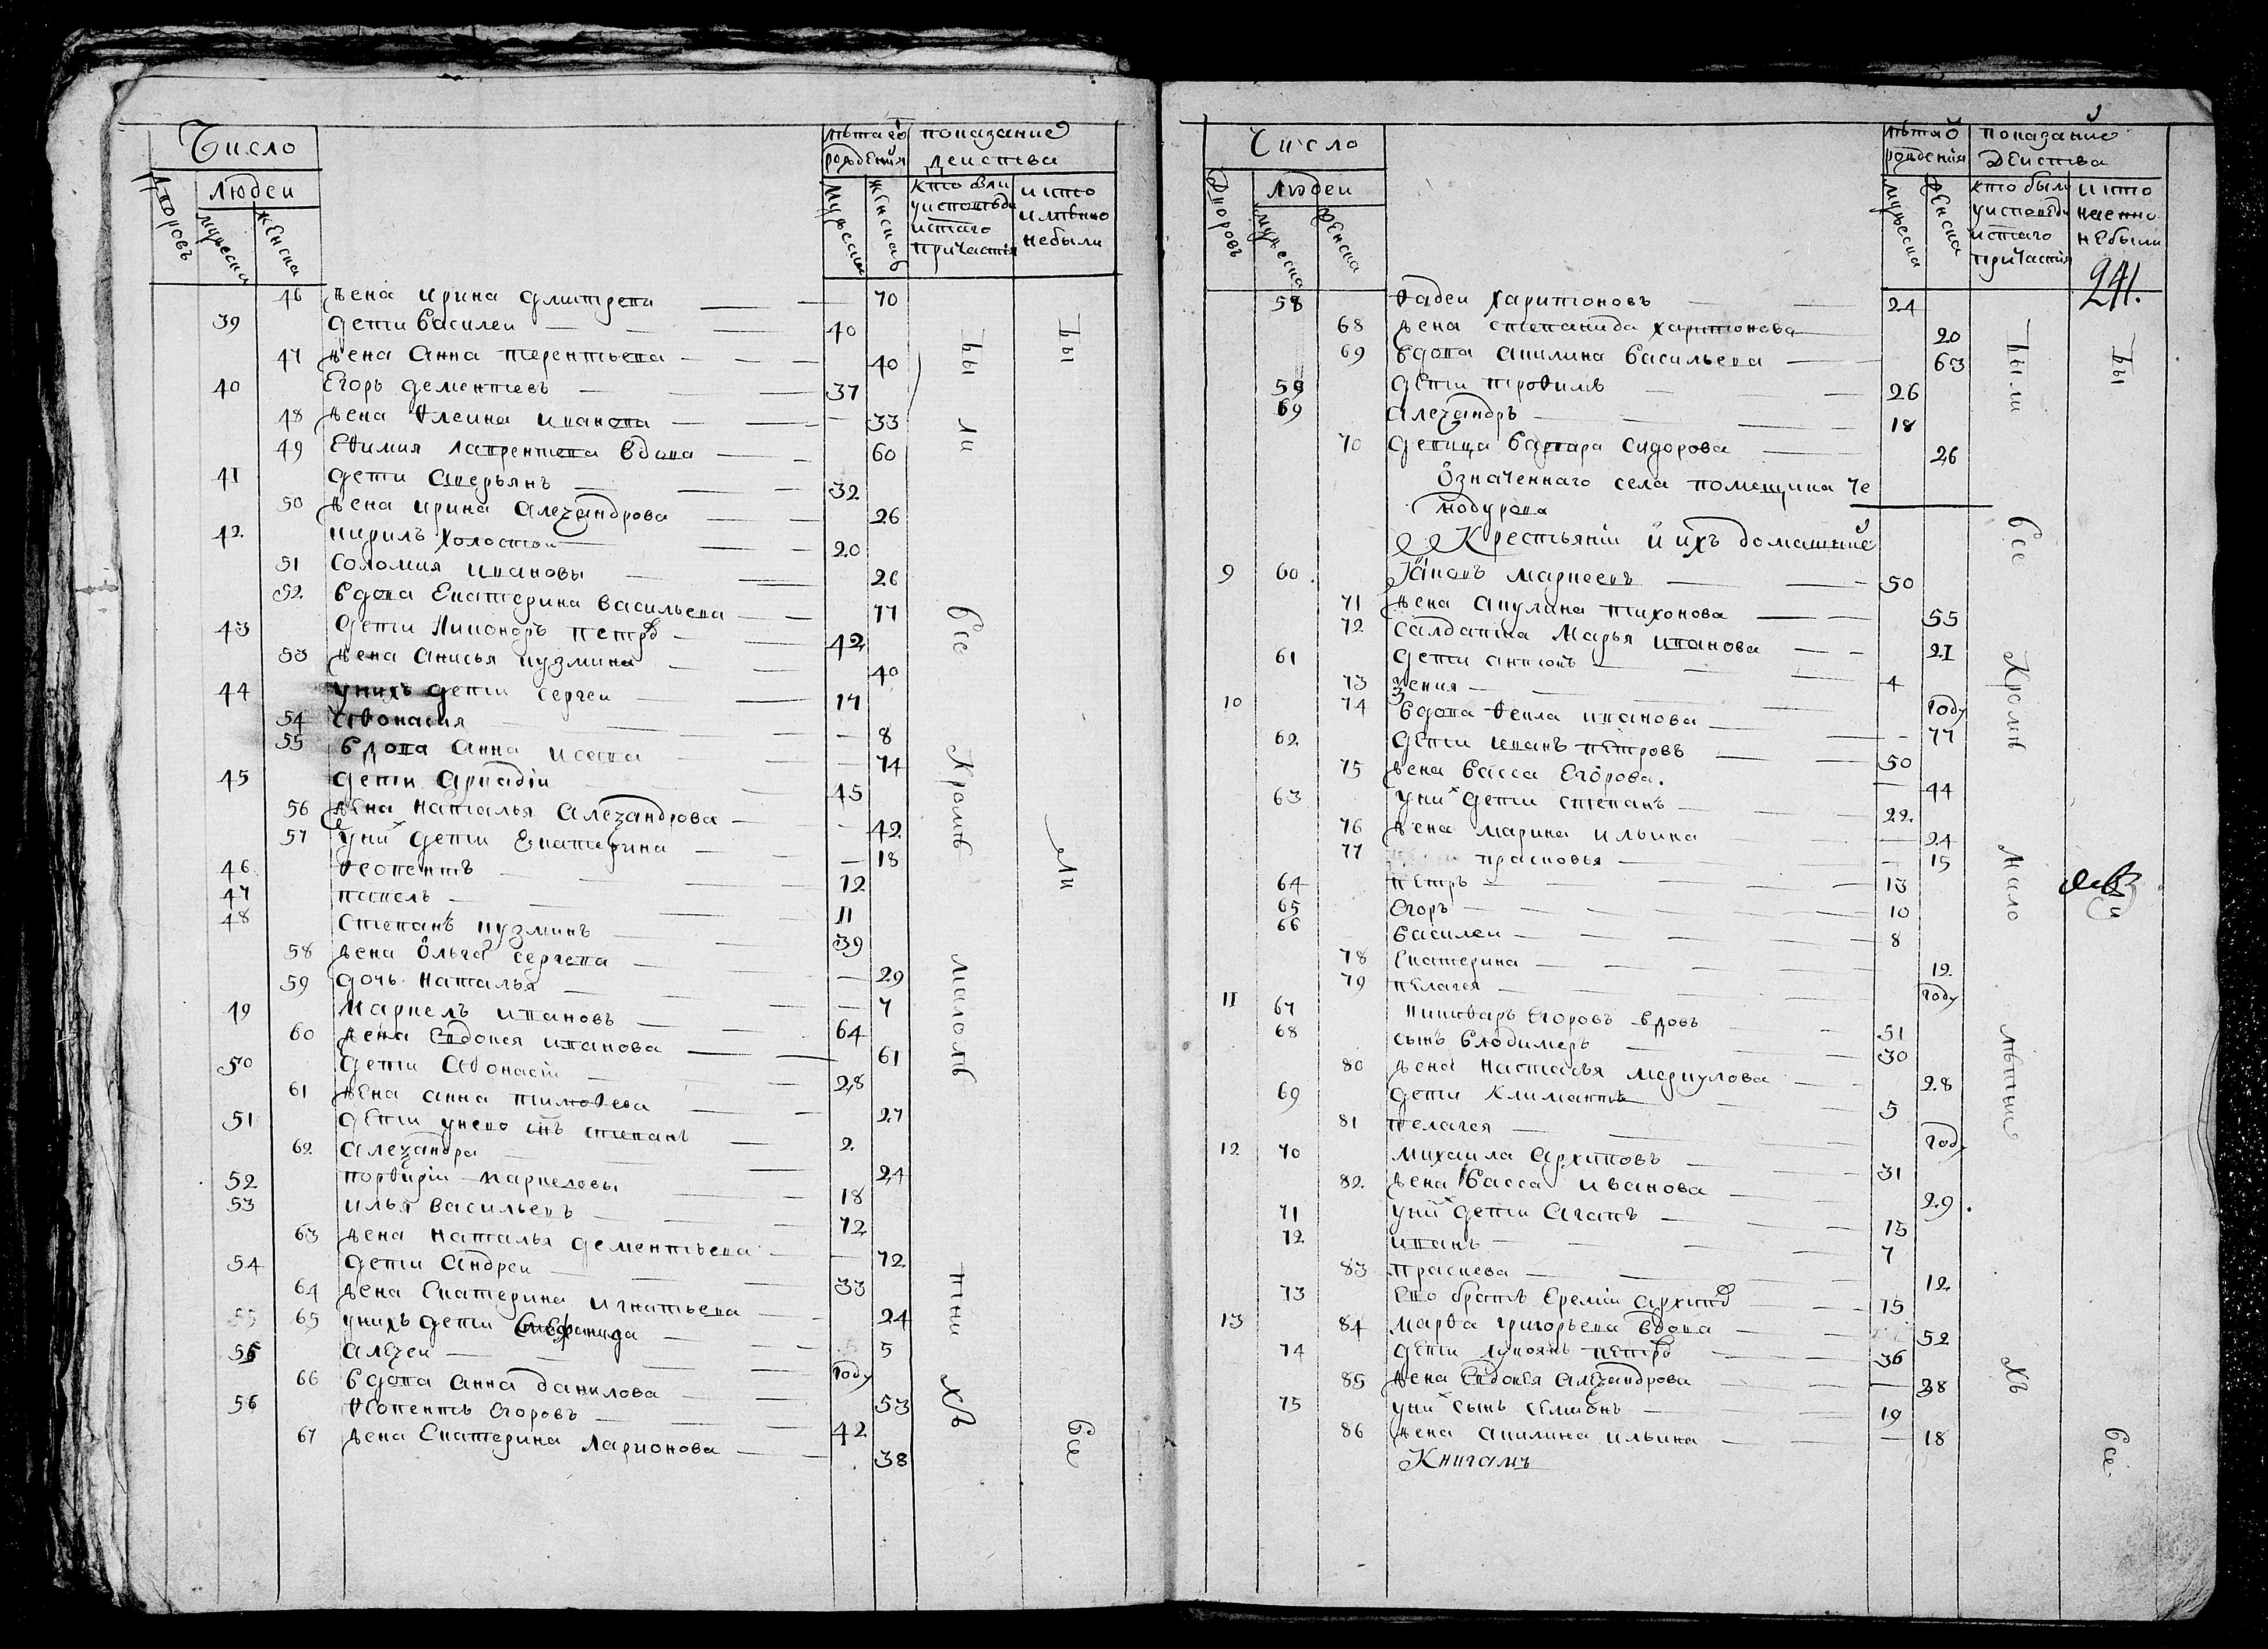 Число
людеи
Дворовъ
мужеска
женска
лѣта ѿ рождения
мужеска
женска
показание деиства
кто были у исповѣди и святаго причастия
и кто имѣнно небыли
46 жена ирина дмитрева 70
39 дети василеи 40
47 жена анна терентьева 40
40 Егоръ дементьевъ 37
48 жена ѳлеина иванова 33
49 Еѳимия лаврентева вдова 60
41 дети аверьянъ 32
50 жена ирина алеѯандрова 26
42 кирилъ холостои 20
51 соломия ивановы 26
52 вдова Екатерина васильева 77
43 дети никоноръ петровъ 42
53 жена анисья кузмина 40
44 у нихъ дети сергеи 17
54 аѳонасия 8
55 вдова анна исаева 74
45 дети аркадіи 45
56 жена наталья алеѯандрова 42
57 у них дети Екатерина 18
46 ѳеопентъ 12
47 павелъ 11
48 степанъ кузминъ 39
58 жена ѻльга сергева 29
59 дочь наталья 7
49 маркелъ ивановъ 64
60 жена Евдокея иванова 61
50 дети аѳонасіи 28
61 жена анна тимоѳева 27
51 дети у него снъ степанъ 2
62 алеѯандра 24
52 порѳирїи маркеловы 18
53 илья васильевъ 72
63 жена наталья дементьева 72
54 дети андреи 33
64 жена Екатерина игнатьева 24
55 65 у нихъ дети 5
55 алеѯеи году
66 вдова анна данилова 53
56 ѳеопентъ егоровъ 42
67 жена Екатерина ларионова 38
все кромѣ малолѣтнихъ
были
все
241.
Число
людеи
Дворовъ
мужеска
женска
лѣта ѿ рождения
мужеска
женска
показание деиства
кто были у исповеди и святаго причастия
и кто имено небыли
58 ѳадеи харитоновъ 24
68 жена степанида харитонова 20
69 вдова акилина васильева 63
59 дети троѳимъ 26
69 алеѯандръ 18
70 девица варвара сидорова 26
Ѻзначеннаго села помещика че
модурова
Крестьяніи и ихъ домашние
9 60 Іѧковъ маркеевъ 50
71 жена акулина тихонова 55
72 салдатка марья иванова 21
61 дети антонъ 4
73 ѯения году
10 74 вдова ѳекла иванова 77
62 дети иванъ петровъ 50
75 жена васса Егорова. 44
63 у них дети степанъ 22
76 жена марина ильина 24
77 прасковья 15
64 петръ 13
65 егоръ 10
66 василеи 8
78 екатерина 12
79 пелагея году
11 67 никиѳаръ егоровъ вдовъ 51
68 сынъ влодимеръ 30
80 жена настасья меркулова 28
69 дети климантъ 5
81 пелагея году
12 70 михаила архиповъ 31
82 жена васса иванова 29.
71 у них дети агапъ 15
72 иванъ 7
83 прасковѧ 12
73 Его братъ еремѣи архипов 15
13 84 марѳа григорьева вдова 52
74 дети лукоянъ петровъ 36
85 жена Евдокея алеѯандрова 38
75 у них сынъ семионъ 19
86 жена акилина ильина 18
Книгамъ
были
все кромѣ малолѣтныхъ
все